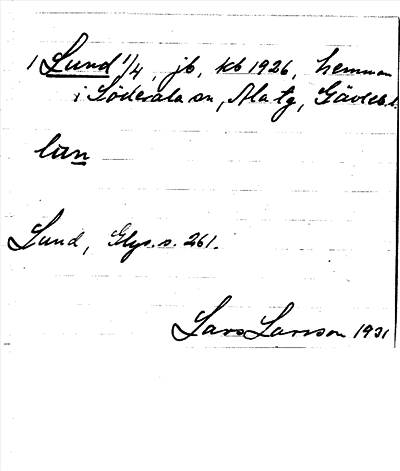 1 Lund 1/4, jb, kb 1926, hemman
i Söderala sn, Ala tg, Gävleb. l.
lun
Lund, Glys. s. 261.
Lars Larsson 1931